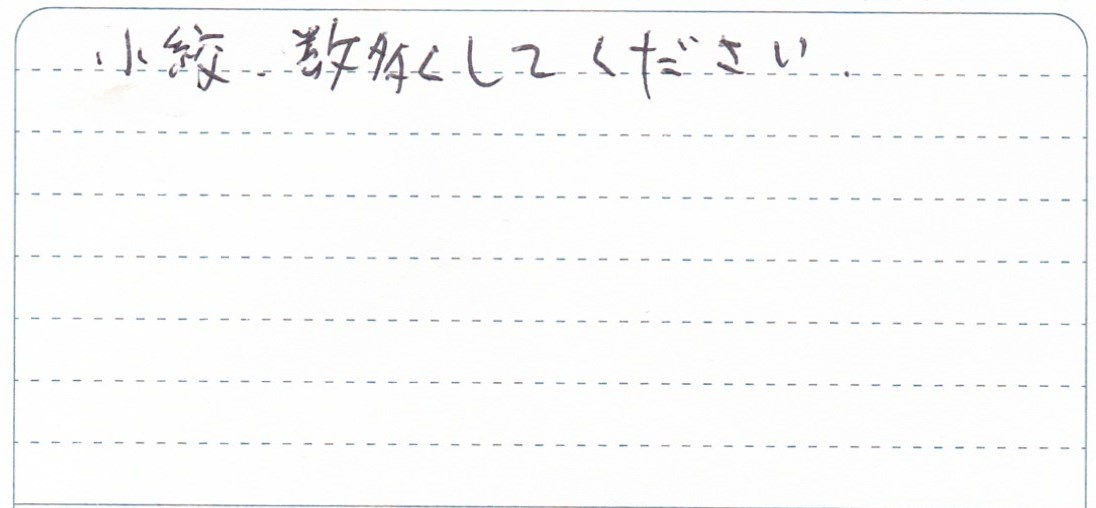 小紋、数多くしてください.